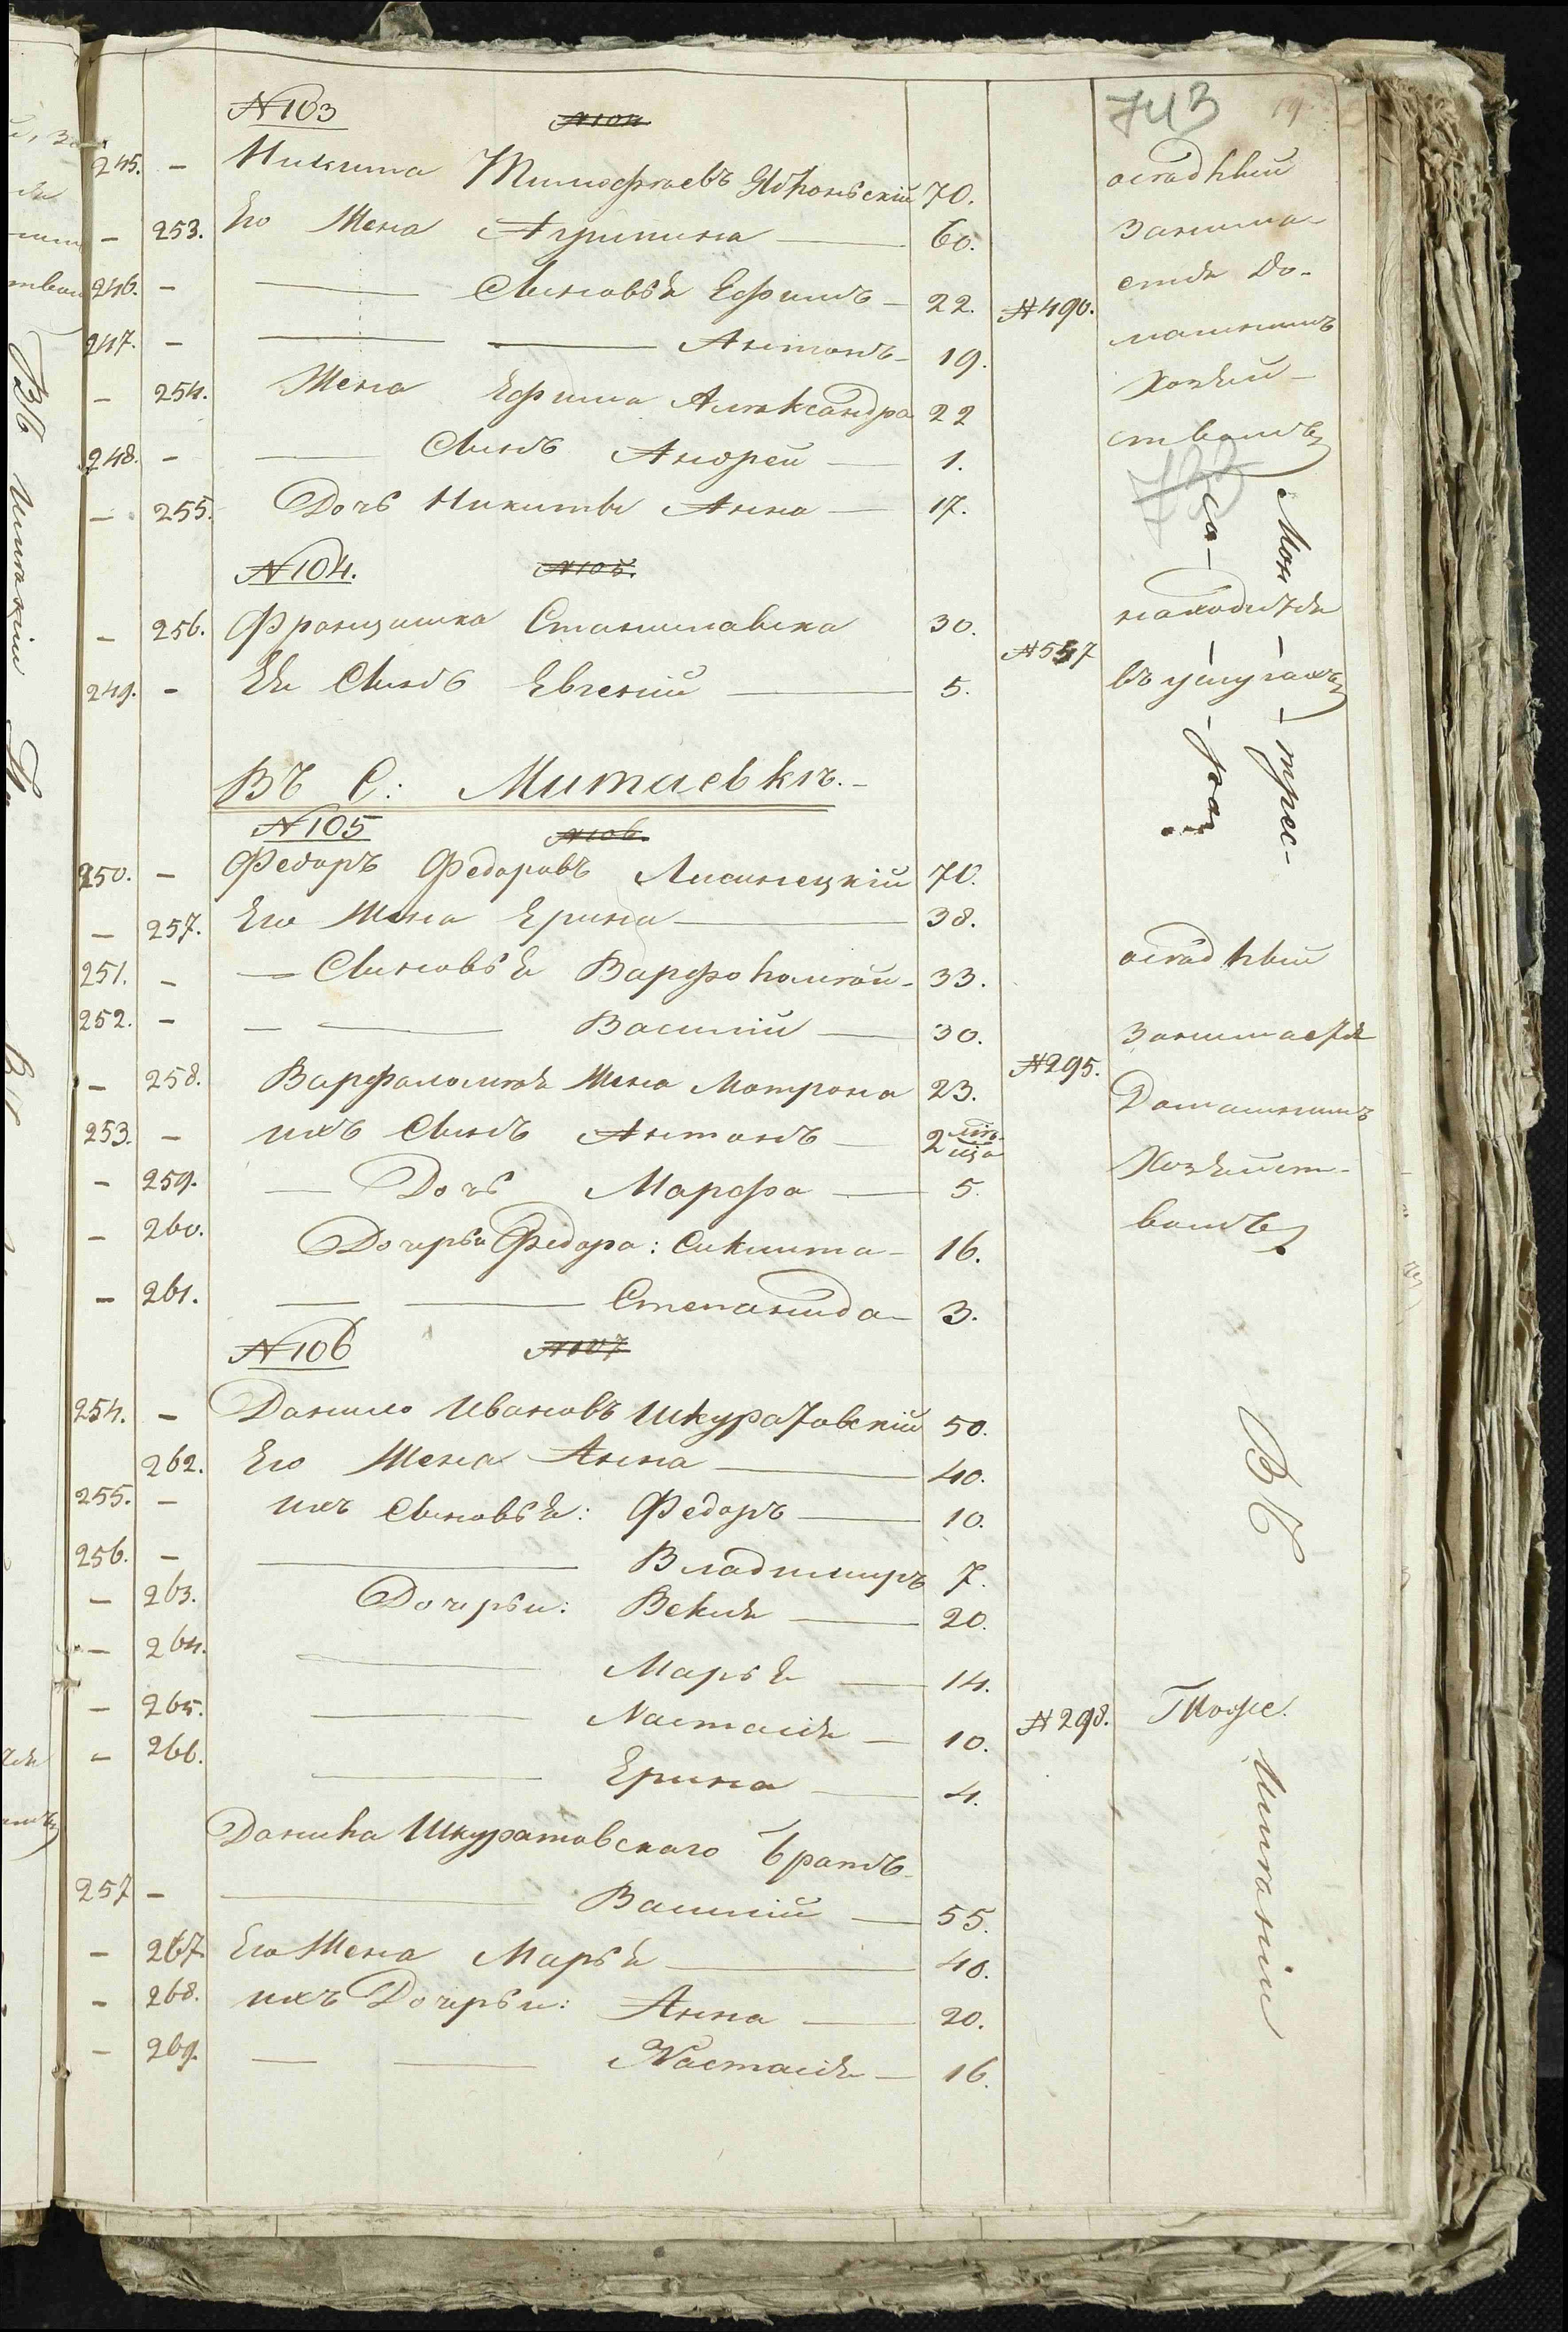 743
19
№ 103 № 104
245. - Никита Тимофѣевъ Яблоньскій 70. осѣдлый
- 253. Его Жена Агрипина 60. Занима-
246. - Сыновья Ефимъ 22. № 490. ется До-
247. - Антонъ 19. машнимъ
- 254. Жена Ефима Александра 22 Хозяй-
248. - Сынъ Андрей 1. ствомъ
- 255. Дочь Никиты Анна 17.
722
№ 104. № 105.
- 256. Францишка Станиславска 30. № 557 находится
249. - Ея Сынъ Евгений 5. въ услугахъ
Въ С: Митаевкѣ.
№ 105 № 106.
250. - Федоръ Федоровъ Лисинецкій 70.
- 257. Его Жена Ерина 38.
251. - Сыновья Варфоломѣй 33. осѣдлый
252. - Василій 30. Занимается
- 258. Варфаломѣя Жена Матрона 23. № 295. Домашнимъ
253. - ихъ Сынъ Антонъ 2 мѣсяца
- 259. Дочь Марфа 5. Хозяйст-
- 260. Дочерьи Федора: Сиклита 16. вомъ
- 261. Степанида 3.
№ 106 № 107
254. - Данило Ивановъ Шкуратовскій 50.
262. Его Жена Анна 40.
255. - ихъ Сыновья: Федоръ 10.
256. - Владимиръ 7.
- 263. Дочерьи: Векля 20.
- 264. Марья 14.
- 265. Настасія 10. № 298. Тоже.
- 266. Ерина 4.
Данила Шкуратовскаго братъ
257 - Василій 55.
- 267 Его Жена Марья 40.
- 268. ихъ Дочерьи: Анна 20.
- 269. Настасія 16.